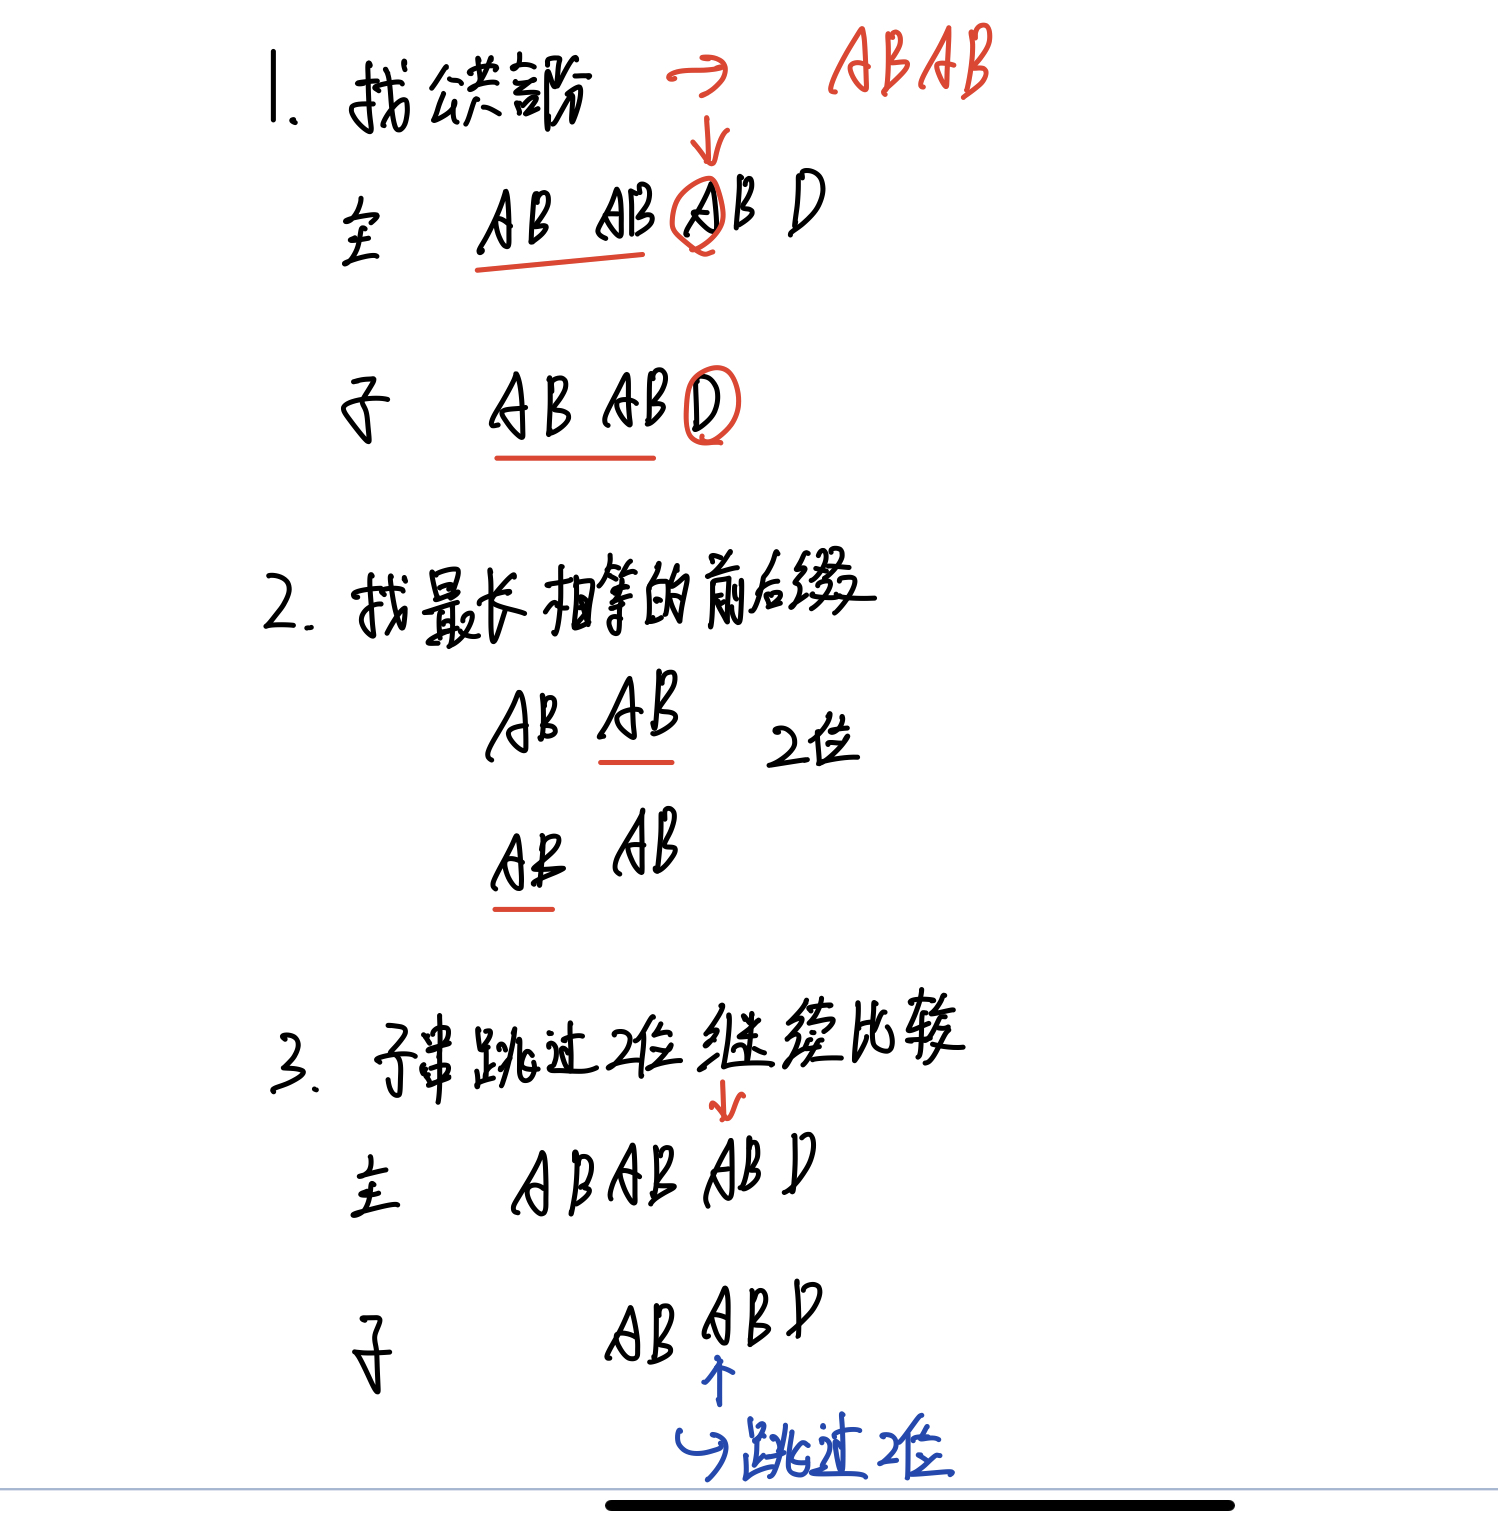 1. 找公共部分 → ABAB
主 AB AB AB D
子 AB AB D
2. 找最长相等的前后缀
AB AB 2位
AB AB
3. 子串跳过2位继续比较
主 AB AB AB D
子 AB AB D
跳过2位